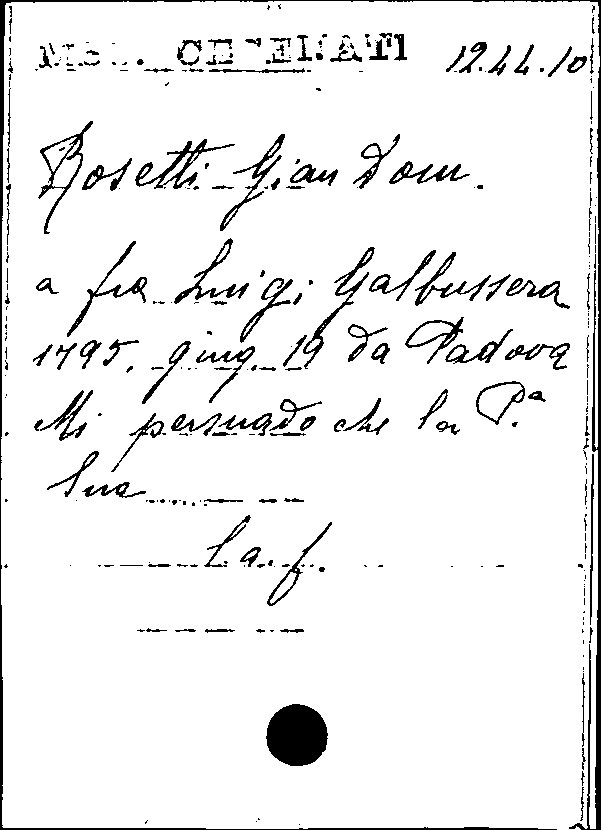 MSS. CESENATI 12.44.10
Rosetti Gian Dom.
a fra Luigi Galbussera
1795. giug. 19 da Padova
Mi persuado che la P.ª
Sua
la. f.